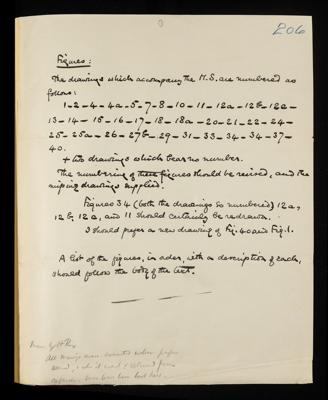 3
206
Figures:
The drawings which accompany the M.S. are numbered as
follows:
1-2-4-4a-5-7-8-10-11-12a-12b-12c-
13-14-15-16-17-18-18a-20-21-22-24-
25-25a-26-27b-29-31-33-34-34-37-
40.
+ two drawings which bear no number.
The numbering of these figures should be revised, and the
missing drawings supplied.
Figures 34 (both the drawings so numbered) 12a,
12b, 12c, and 11 should certainly be redrawn.
I should prefer a new drawing of Fig. 40 and Fig. 1.
A list of the figures, in order, with a description of each,
should follow the body of the text.
All